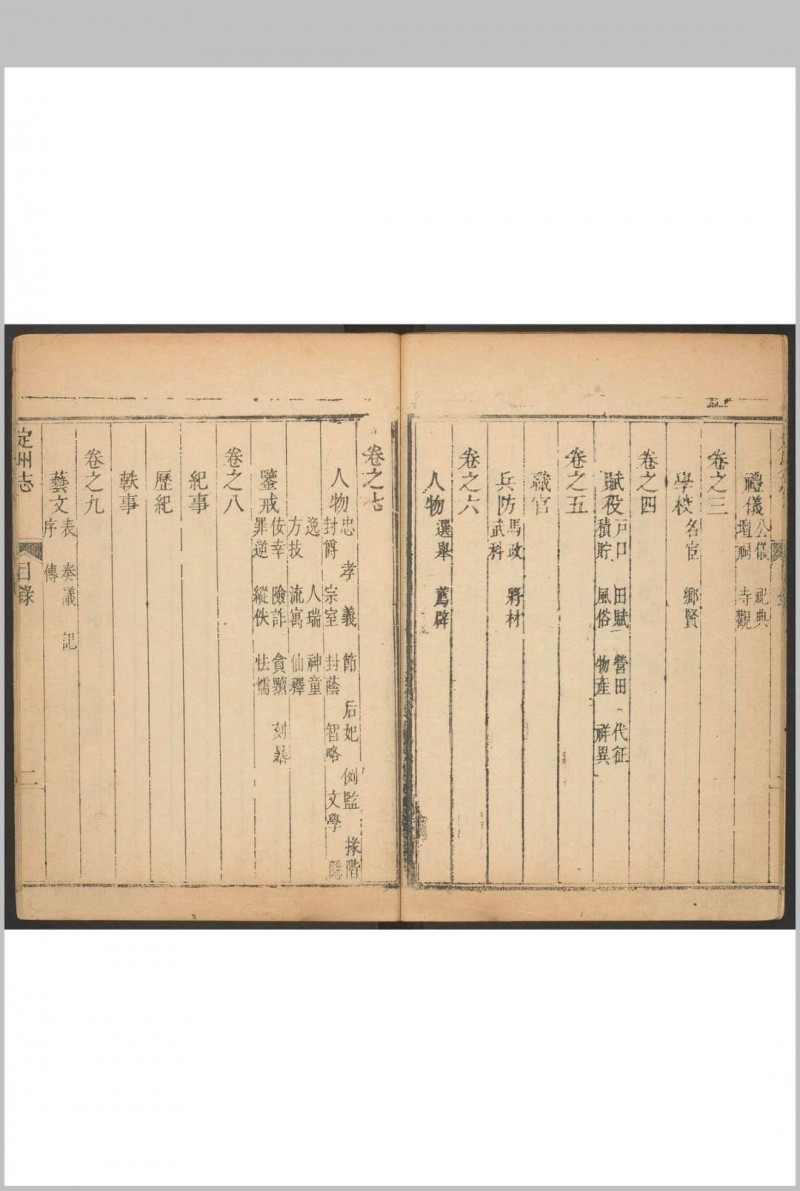 禮儀 公儀 祀典
壇祠 寺觀
卷之三
學校 名宦 鄉賢
卷之四
賦役 戸口 田賦 營田 代征
積貯 風俗 物產 祥異
卷之五
職官
兵防 馬政 將材
武科
卷之六
人物 選舉 薦辟
卷之七
人物 忠 孝 義 節 后妃 例監 掾階
封爵 宗室 封蔭 智略 文學 隱
逸 人瑞 神童
方技 流寓 仙釋
鑒戒 佞幸 險詐 貪黷 刻暴
罪逆 縱佚 怯懦
卷之八
紀事
歷紀
軼事
卷之九
藝文 表 奏議 記
序 傳
定州志 目錄 二